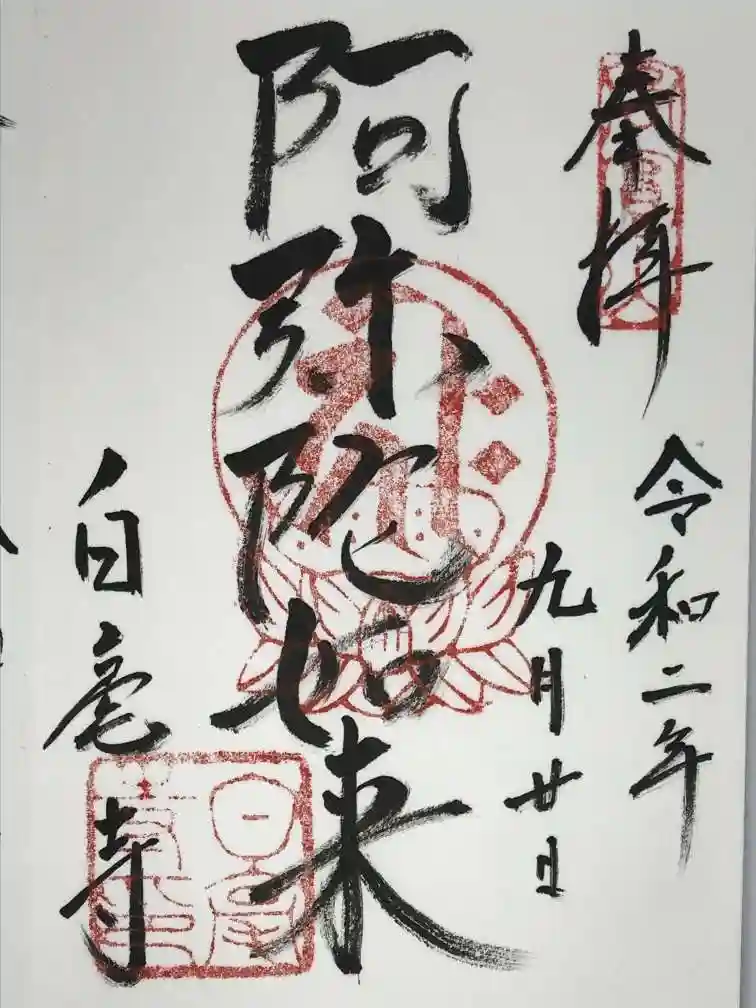 奉拝
令和二年
九月廿日
阿弥陀如来
白毫寺